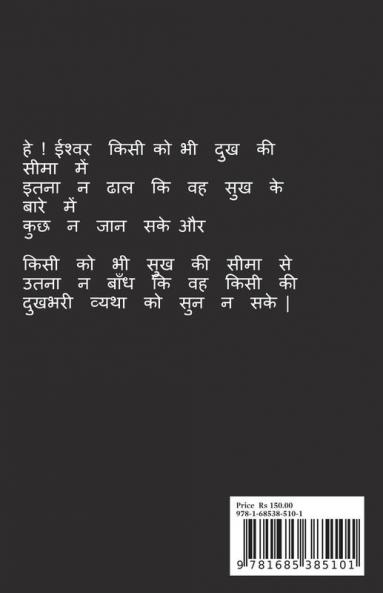 हे ! ईश्वर किसी को भी दुख की
सीमा में
इतना न ढाल कि वह सुख के
बारे में
कुछ न जान सके और
किसी को भी सुख की सीमा से
उतना न बाँध कि वह किसी की
दुखभरी व्यथा को सुन न सके |
Price Rs 150.00
978-1-68538-510-1
9 781685 385101